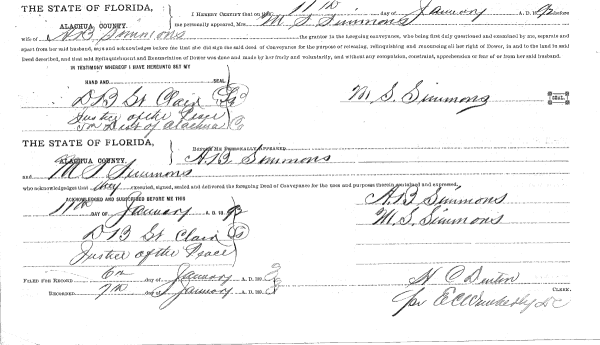 THE STATE OF FLORIDA,
ALACHUA COUNTY.
I HEREBY CERTIFY that on this 11th day of January A. D. 18 92 before
me personally appeared, M. S. Simmons
wife of A B Simmons the grantor in the foregoing conveyance, who being first duly questioned and examined by me, separate and
apart from her said husband, says and acknowledges before me that she did sign the said deed of Conveyance for the purpose of releasing, relinquishing and renouncing all her right of Dower, in and to the land in said
Deed described, and that said Relinquishment and Renunciation of Dower was done and made by her freely and voluntarily, and without any compulsion, constraint, apprehension or fear of or from her said husband.
IN TESTIMONY WHEREOF I HAVE HEREUNTO SET MY
HAND AND SEAL
D B St Clair
Justice of the Peace
Dist of Alachua Co
M. S. Simmons SEAL
THE STATE OF FLORIDA,
ALACHUA COUNTY.
BEFORE ME PERSONALLY APPEARED
A B Simmons
and M S Simmons
who acknowledges that they executed, signed, sealed and delivered the foregoing Deed of Conveyance for the uses and purposes therein contained and expressed.
ACKNOWLEDGED AND SUBSCRIBED BEFORE ME THIS
11th DAY OF January A. D. 18 92
A B Simmons
M. S. Simmons
D B St Clair
Justice of the Peace
FILED FOR RECORD 6th day of January A. D. 189 3
RECORDED 7th day of January A. D. 189 3
H C Denton
CLERK.
per E C